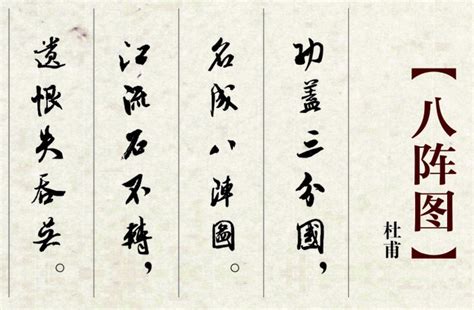 【八阵图】
杜甫
功盖三分國，
名成八陣圖。
江流石不轉，
遗恨失吞吴。